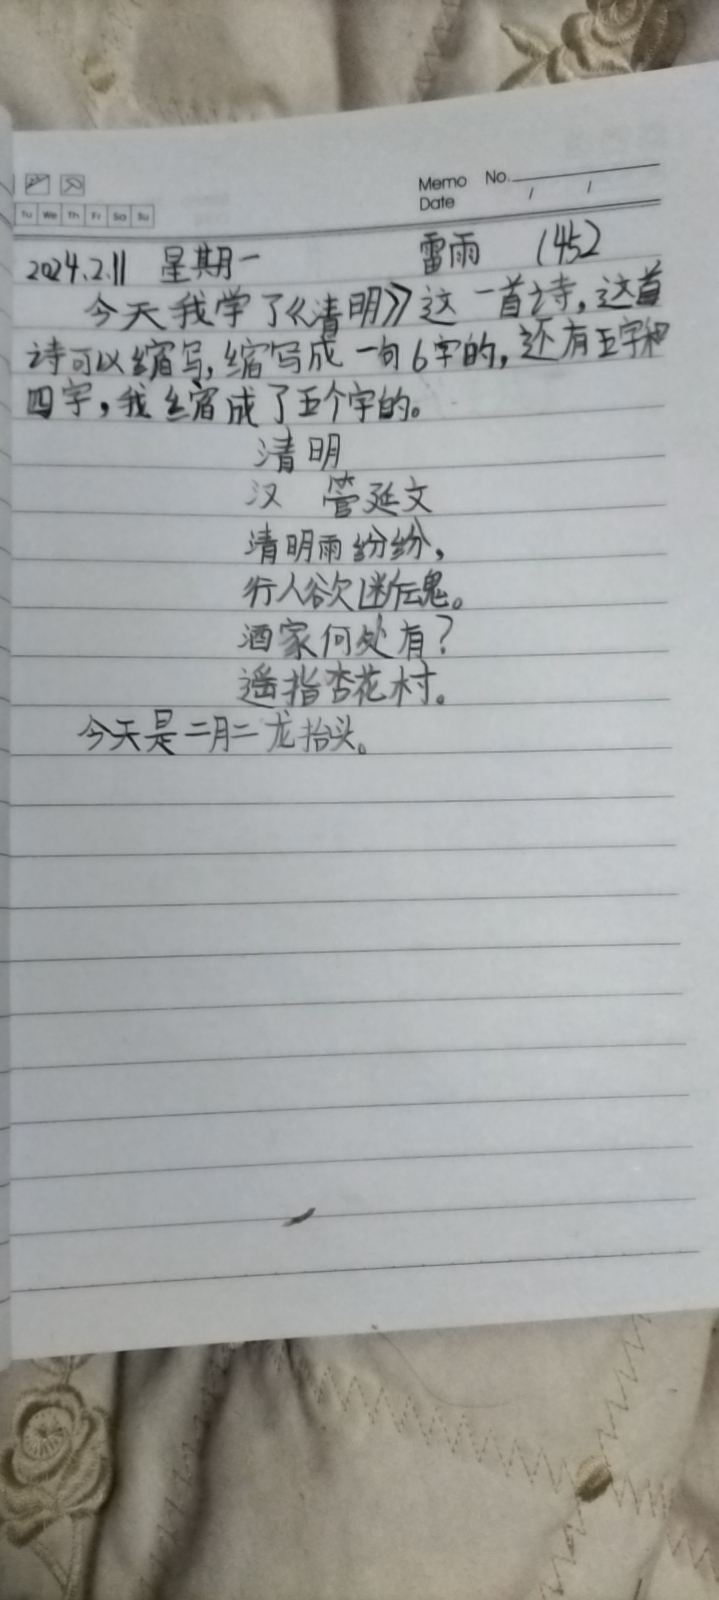 Memo No.
Tu We Th Fr Sa Su
Date / /
2024.2.11 星期一 雷雨 (452
今天我学了《清明》这一首诗,这首
诗可以缩写,缩写成一句6字的,还有五字和
四字,我缩成了五个字的。
清明
汉 管延文
清明雨纷纷,
行人欲断魂。
酒家何处有?
遥指杏花村。
今天是二月二龙抬头。